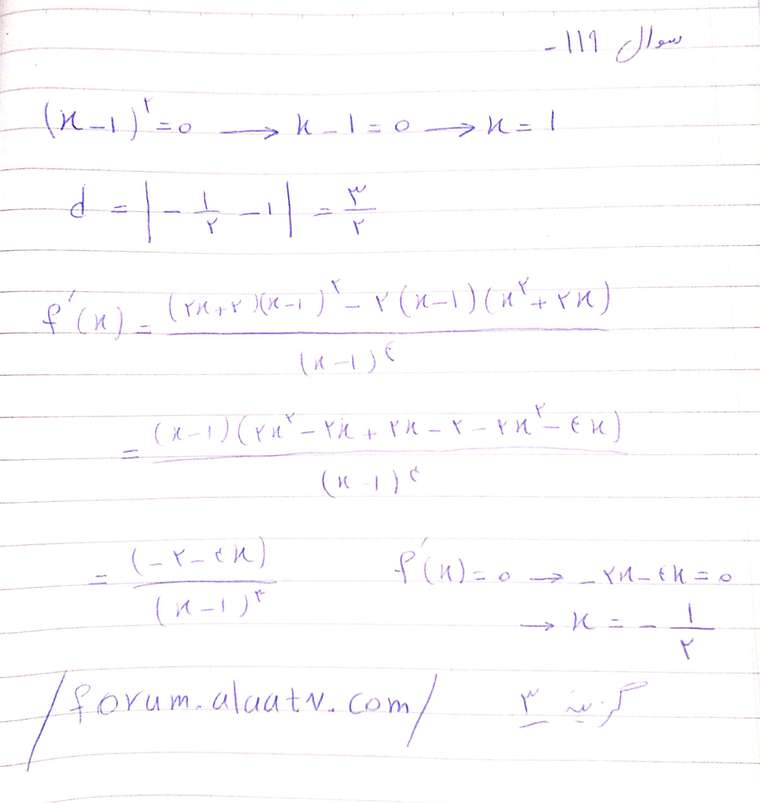 سوال ۱۱۹-
(x-1)^۲=0 → x-1=0 → x=1
d = |-۱/۲ -1| = ۳/۲
f'(x) = (۲x+۲)(x-1)^۲ - ۲(x-1)(x^۲+۲x) / (x-1)^۴
= (x-1)(۲x^۲-۲x+۲x-۲-۲x^۲-۴x) / (x-1)^۴
= (-۲-۴x) / (x-1)^۳ f'(x)=0 → -۲x-۴x=0
→ x = -۱/۲
/forum.alaatv.com/ گزینه ۳